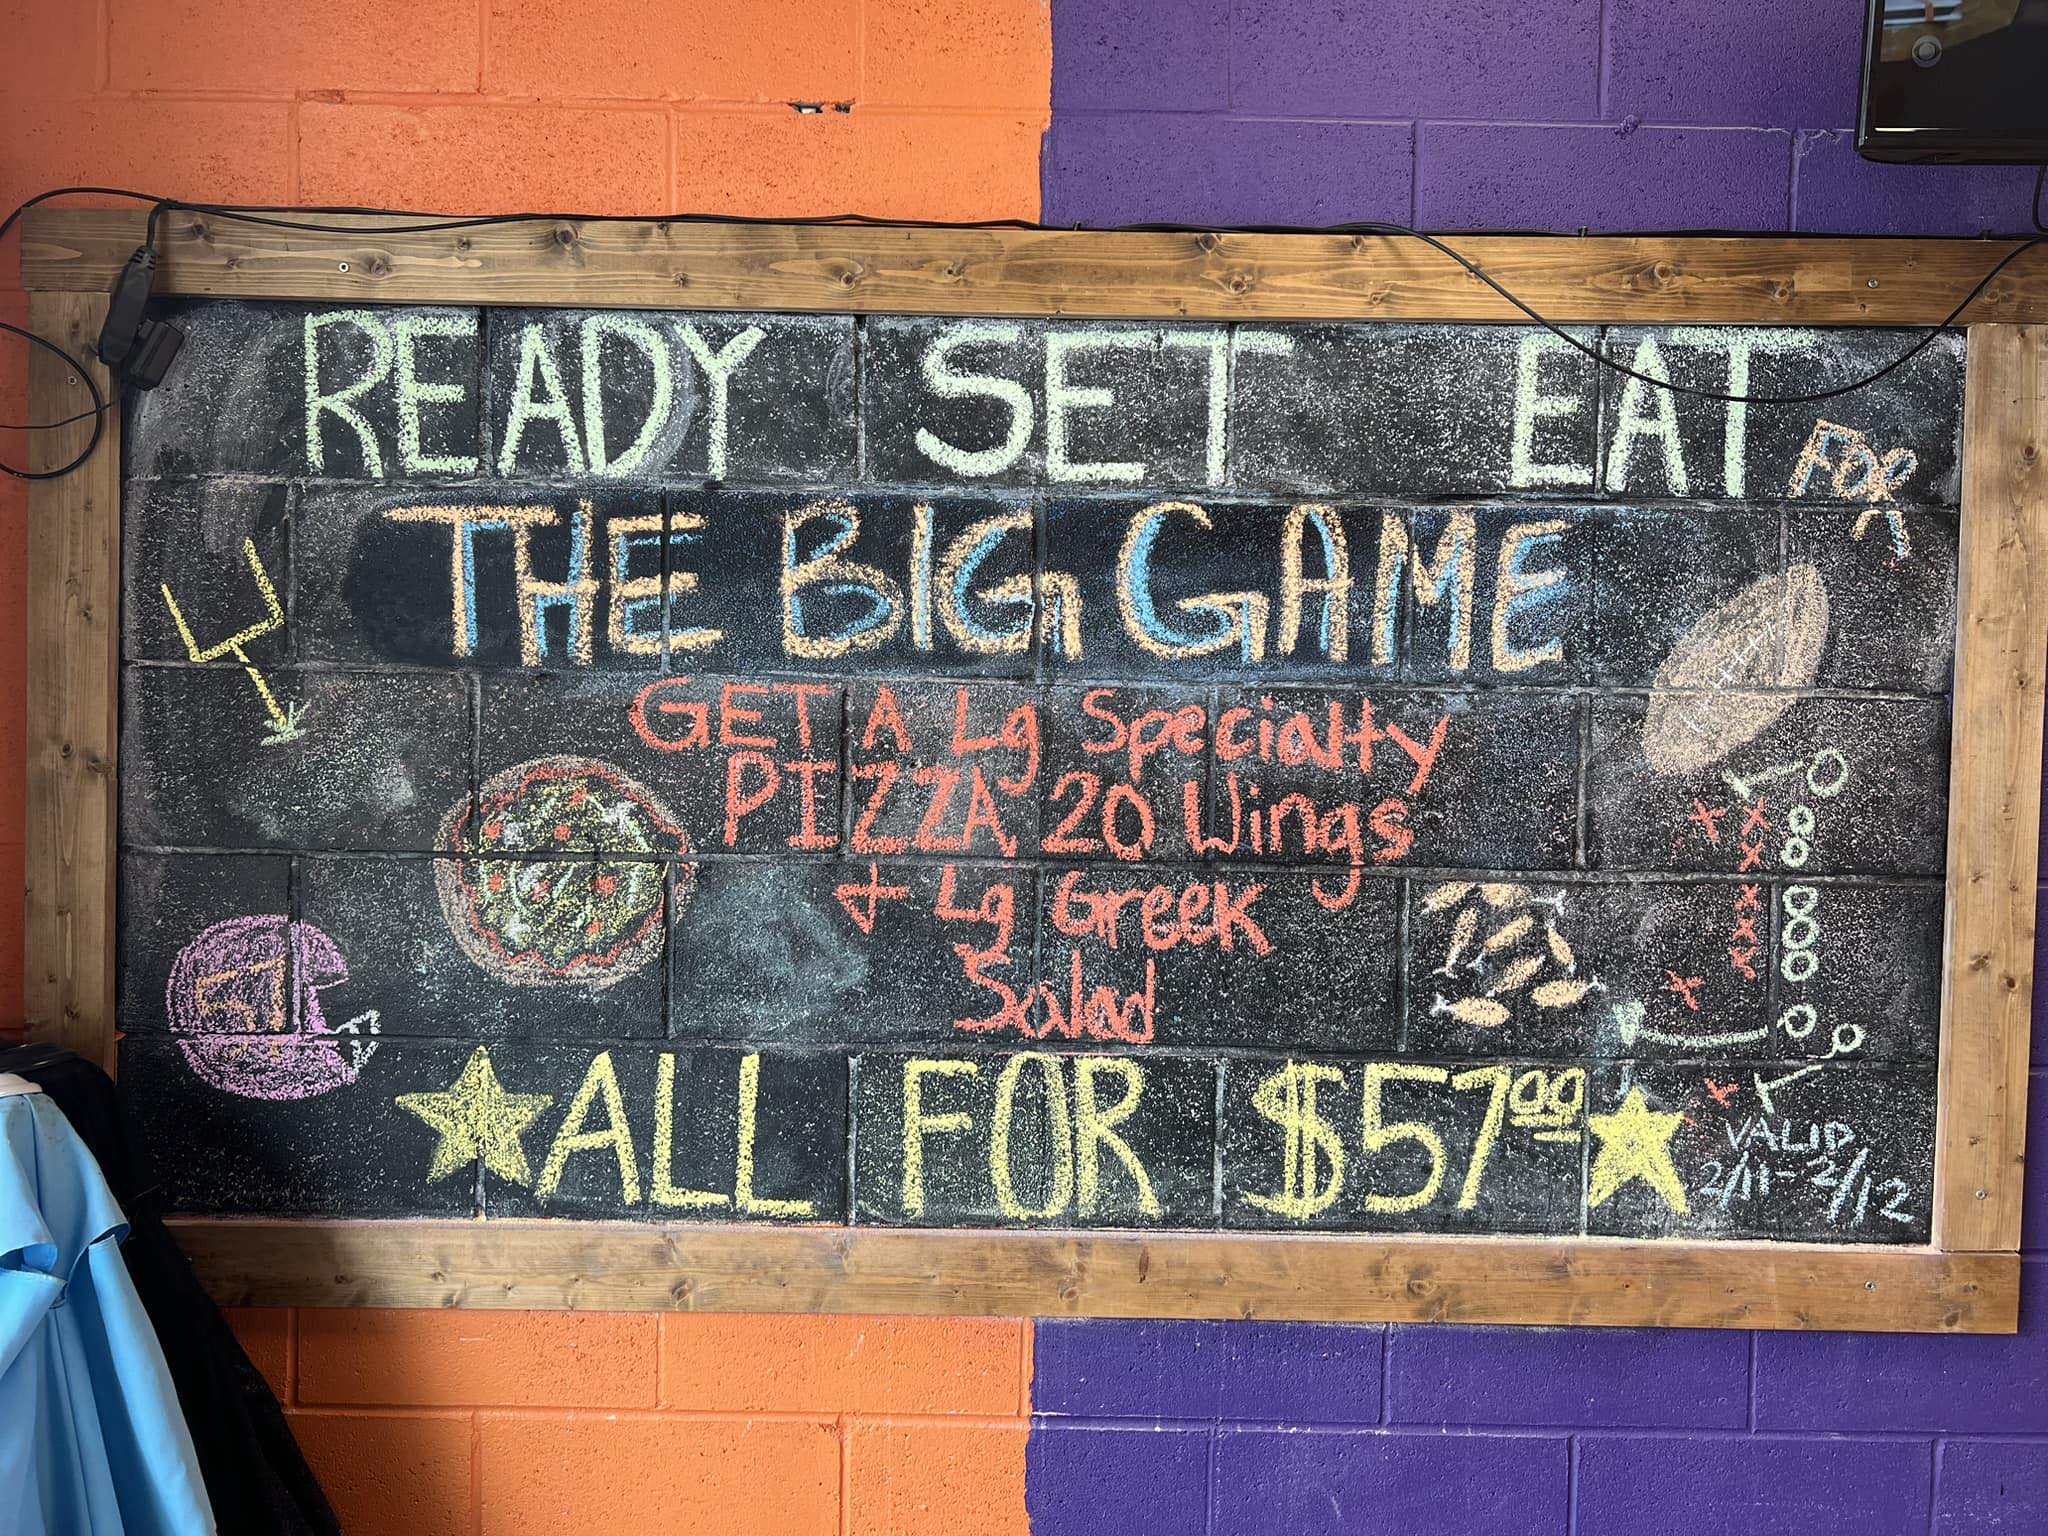 READY SET EAT FOR
THE BIG GAME
GET A Lg Specialty
PIZZA 20 Wings
+ Lg Greek
Salad
ALL FOR $57.00
VALID
2/11-2/12